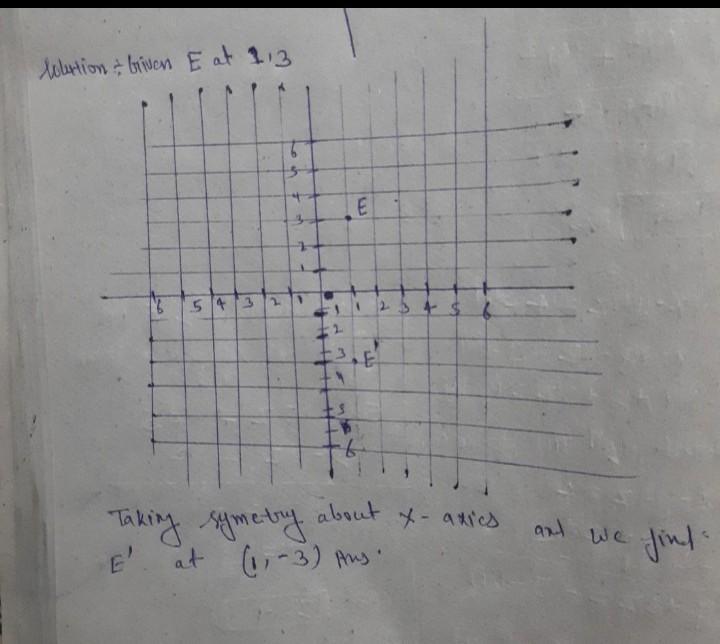 Solution ÷ Given E at 1,3
6
5
4
3 E
2
1
6 5 4 3 2 1 1 2 3 4 5 6
1
2
3 E'
4
5
6
Taking symetry about x-axics and we find
E' at (1,-3) Ans.